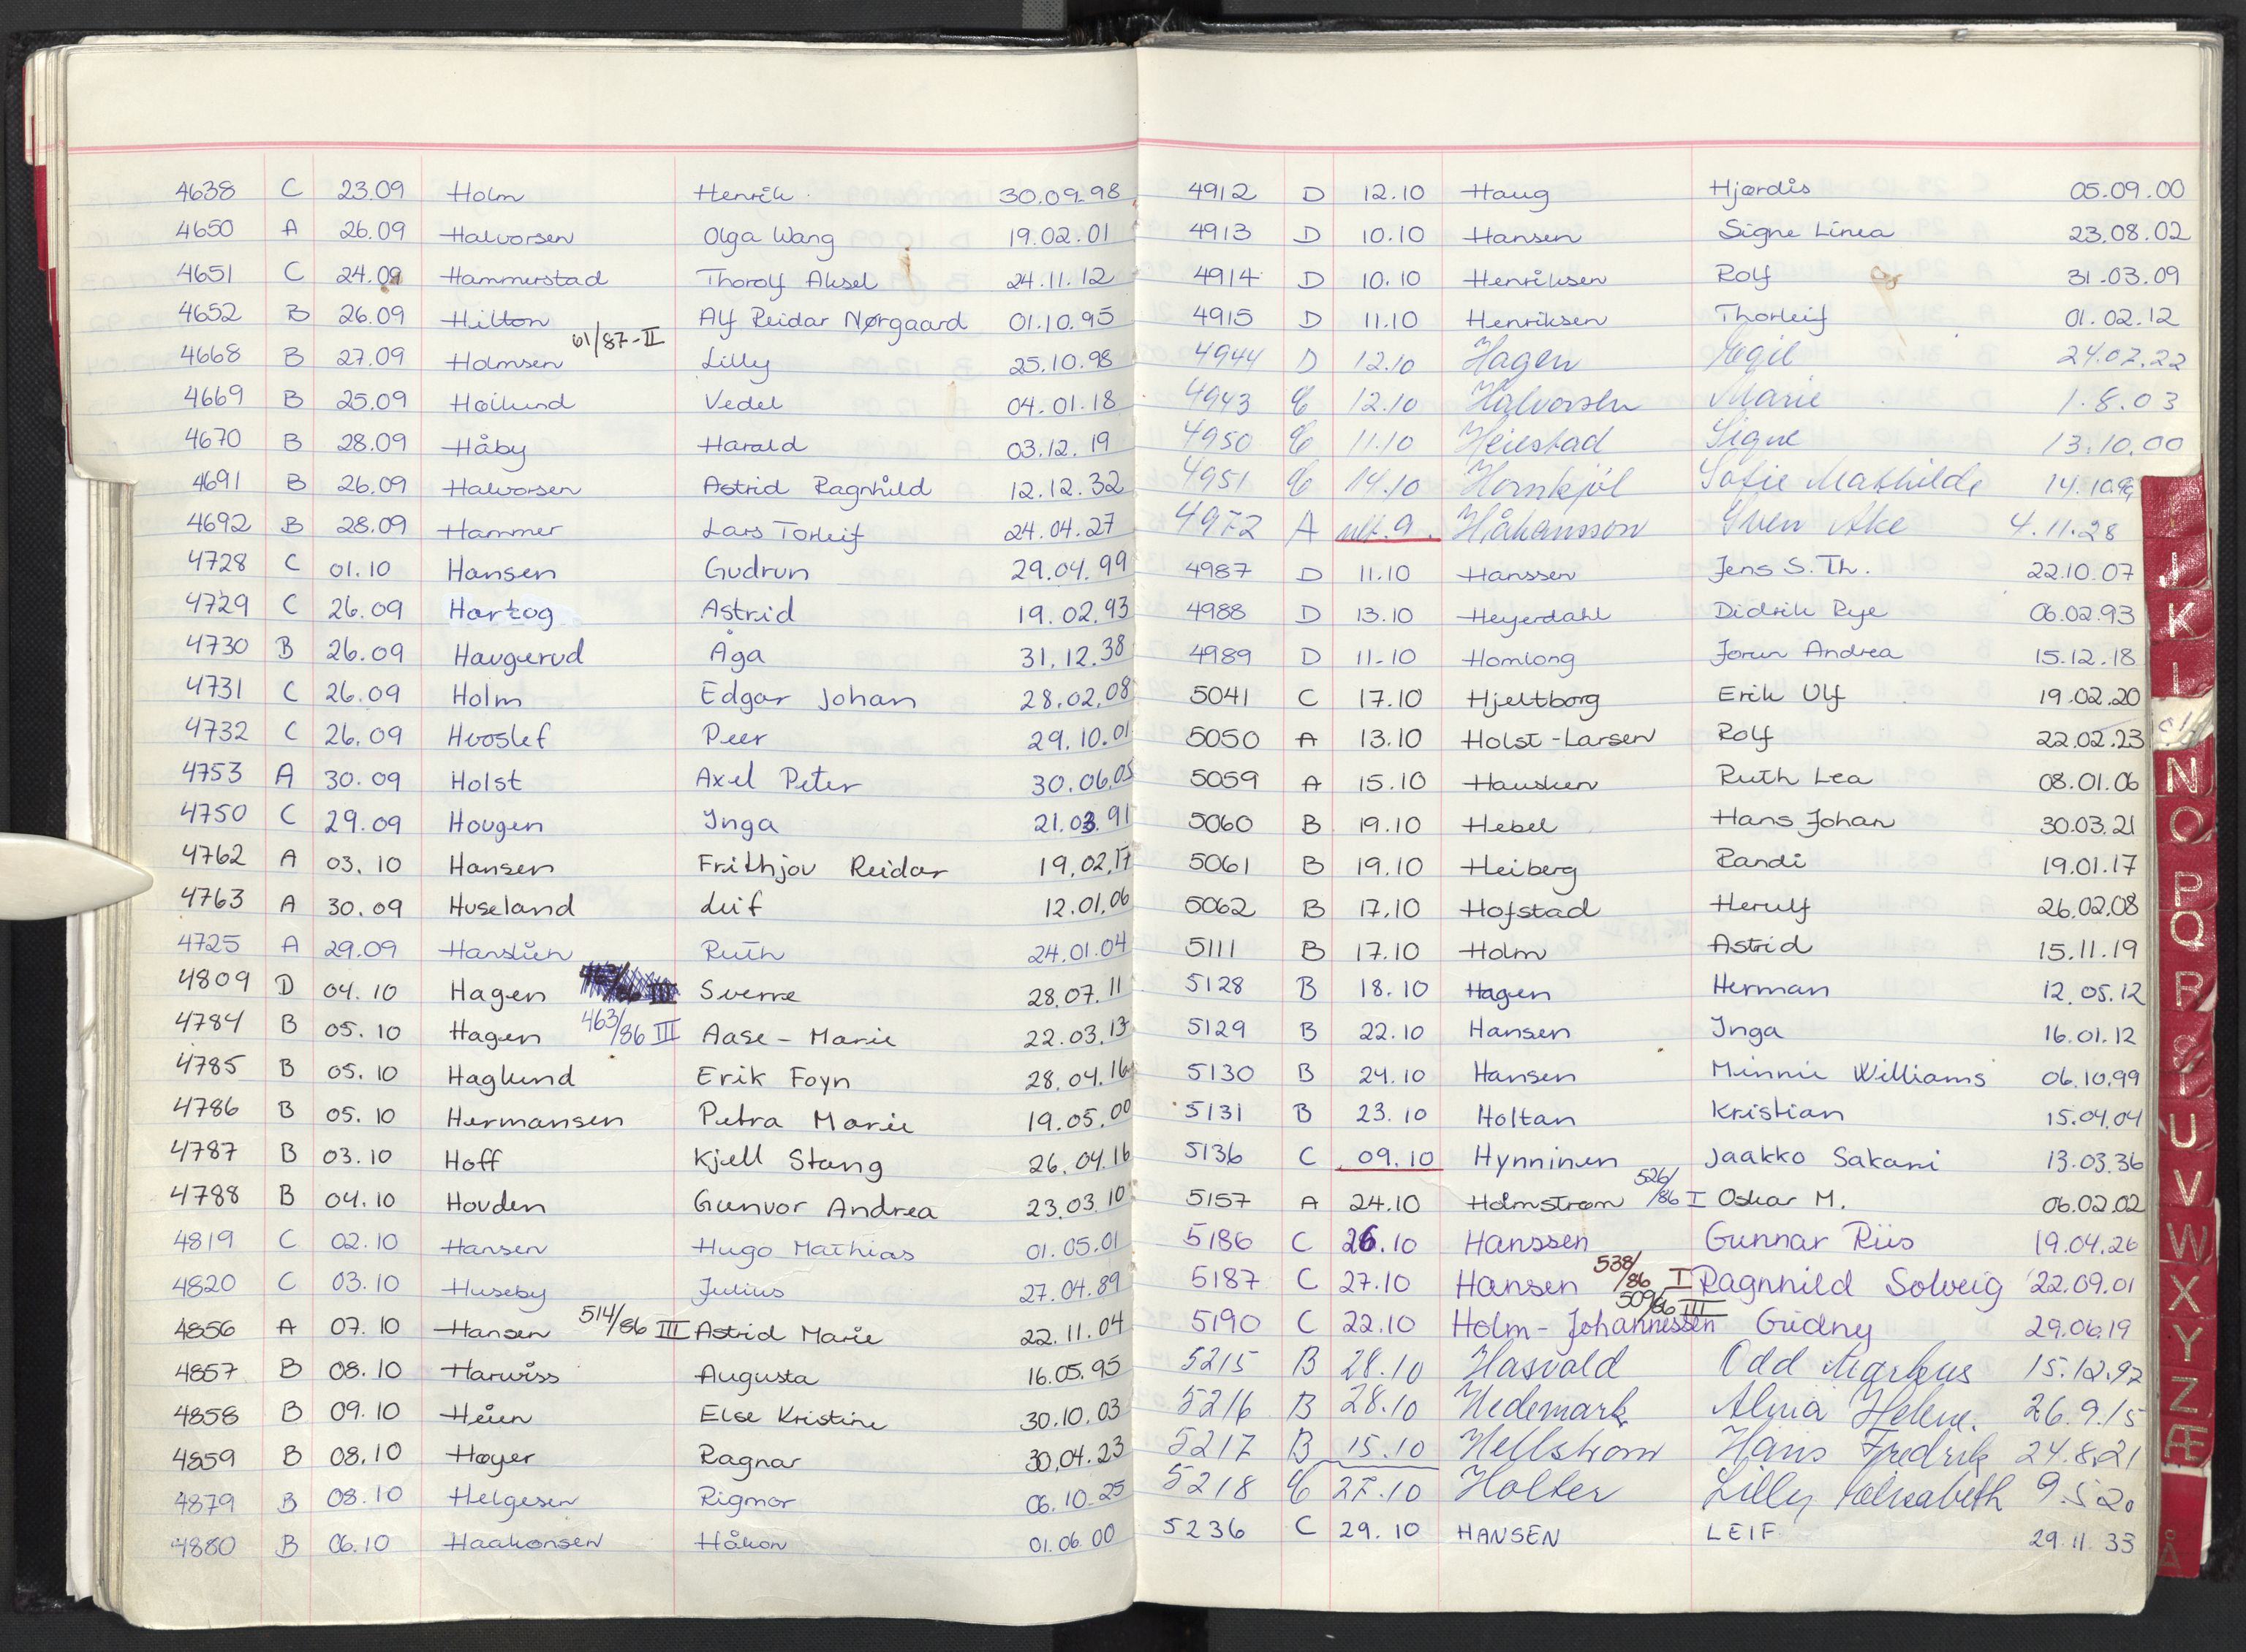 4638 C 23.09 Holm Henrik 30.09.98
4650 A 26.09 Halvorsen Olga Wang 19.02.01
4651 C 24.09 Hammerstad Thorolf Aksel 24.11.12
4652 B 26.09 Hilton Alf Reidar Nørgaard 01.10.95
4668 B 27.09 Holmsen 61/87-II Lilly 25.10.98
4669 B 25.09 Høilund Vedel 04.01.18
4670 B 28.09 Håby Harald 03.12.19
4691 B 26.09 Halvorsen Astrid Ragnhild 12.12.32
4692 B 28.09 Hammer Lars Torleif 24.04.27
4728 C 01.10 Hansen Gudrun 29.04.99
4729 C 26.09 Hartzog Astrid 19.02.93
4730 B 26.09 Haugerud Åga 31.12.38
4731 C 26.09 Holm Edgar Johan 28.02.08
4732 C 26.09 Hvoslef Peer 29.10.01
4753 A 30.09 Holst Axel Peter 30.06.05
4750 C 29.09 Hougen Inga 21.03.91
4762 A 03.10 Hansen Frithjov Reidar 19.02.17
4763 A 30.09 Huseland Leif 12.01.06
4725 A 29.09 Hanslien Ruth 24.01.04
4809 D 04.10 Hagen Sverre 28.07.11
4784 B 05.10 Hagen 463/86 III Aase-Marie 22.03.13
4785 B 05.10 Haglund Erik Foyn 28.04.16
4786 B 05.10 Hermansen Petra Marie 19.05.00
4787 B 03.10 Hoff Kjell Stang 26.04.16
4788 B 04.10 Hovden Gunvor Andrea 23.03.10
4819 C 02.10 Hansen Hugo Mathias 01.05.01
4820 C 03.10 Huseby Julius 27.04.89
4856 A 07.10 Hansen 514/86 III Astrid Marie 22.11.04
4857 B 08.10 Harwiss Augusta 16.05.95
4858 B 09.10 Heien Else Kristine 30.10.03
4859 B 08.10 Høyer Ragnar 30.04.23
4879 B 08.10 Helgesen Rigmor 06.10-25
4880 B 06.10 Haakonsen Håkon 01.06.00
4912 D 12.10 Haug Hjørdis 05.09.00
4913 D 10.10 Hansen Signe Linea 23.08.02
4914 D 10.10 Henriksen Rolf 31.03.09
4915 D 11.10 Henriksen Thorleif 01.02.12
4944 D 12.10 Hagen Egil 24.02.22
4943 C 12.10 Halvorsen Marie 1.8.03
4950 C 11.10 Heiestad Signe 13.10.00
4951 C 14.10 Hornkjøl Sofie Mathilde 14.10.
4972 A Håkansson Sven Åke 4.11.28
4987 D 11.10 Hanssen Jens S. Th. 22.10.07
4988 D 13.10 Heyerdahl Didrik Rye 06.02.93
4989 D 11-10 Homlong Jorun Andrea 15.12.18
5041 C 17.10 Hjeltborg Erik Ulf 19.02.20
5050 A 13.10 Holst-Larsen Rolf 22.02.23
5059 A 15.10 Hausken Ruth Lea 08.01.06
5060 B 19.10 Hebel Hans Johan 30.03.21
5061 B 19.10 Heiberg Randi 19.01.17
5062 B 17.10 Hofstad Herulf 26.02.08
5111 B 17.10 Holm Astrid 15.11.19
5128 B 18.10 Hagen Herman 12.05.12
5129 B 22.10 Hansen Inga 16.01.12
5130 B 24.10 Hansen Minnie Williams 06.10.99
5131 B 23.10 Holtan Kristian 15.04.04
5136 C 09.10 Hynninen Jaakko Sakani 13.03.36
5157 A 24.10 Holmstrøm 526/86 I Oskar M. 06.02.02
5186 C 26.10 Hanssen Gunnar Riis 19.04.26
5187 C 27.10 Hansen 538/86 I Ragnhild Solveig 22.09.01
5190 C 22.10 Holm-Johannessen 509/86 III Gudny 29.06.19
5215 B 28.10 Hasvold Odd Markus 15.12.92
5216 B 28.10 Hedemark Alvia Helene. 26.9.15
5217 B 15.10 Hellstrøm Hans Fredrik 24.8.21
5218 C 27.10 Holter Lilly Elisabeth 9.5.20
5236 C 29.10 HANSEN LEIF 29.11.33
J
K
L
N
O
P
Q
R
S
U
V
W
X
Y
Z
Æ
Å